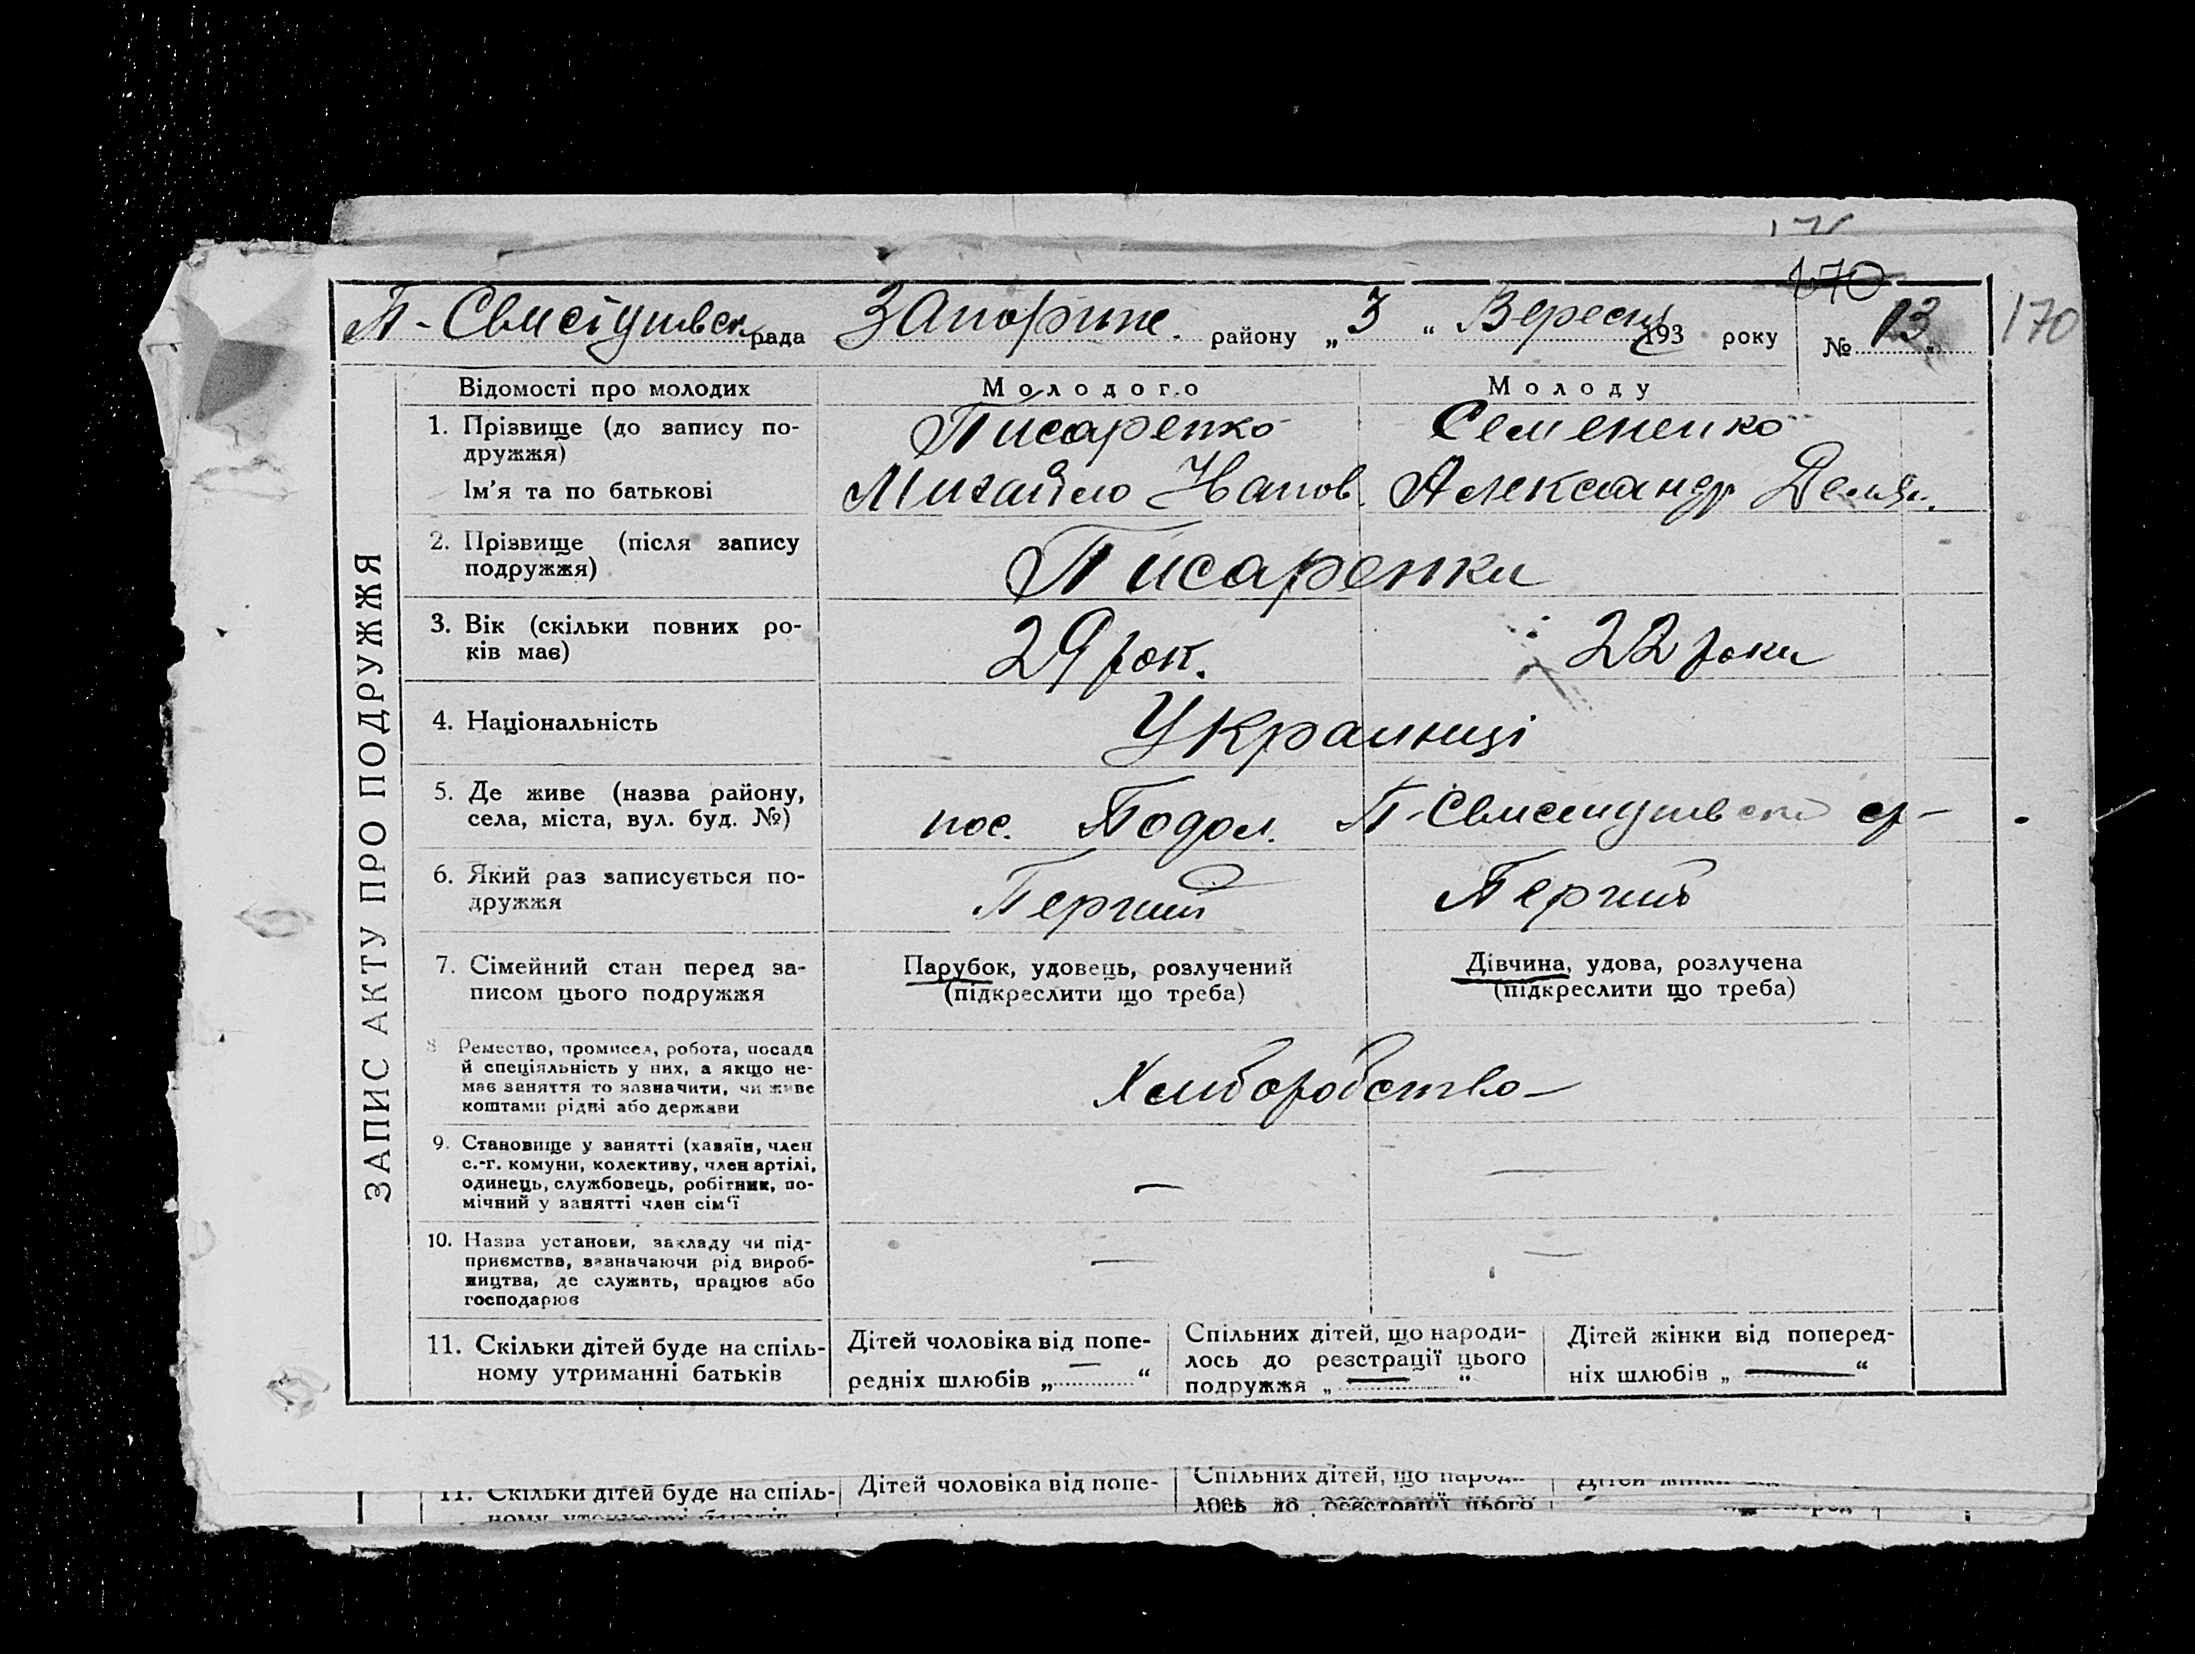 170
П-Свистунівск рада Запоріже. району „3“ Вересня 193 року № 13 170
ЗАПИС АКТУ ПРО ПОДРУЖЖЯ
Відомості про молодих Молодого Молоду
1. Прізвище (до запису по- Писаренко Семененко
дружжя)
Ім'я та по батькові Михайло Иванов. Александр Демян.
2. Прізвище (після запису Писаренки
подружжя)
3. Вік (скільки повних ро- 29 рок. 22 роки
ків має)
4. Національність Украинці
5. Де живе (назва району, пос. Подол. П-Свистунівск ср-
села, міста, вул. буд. №)
6. Який раз записується по- Перший Перший
дружжя
7. Сімейний стан перед за- Парубок, удовець, розлучений Дівчина, удова, розлучена
писом цього подружжя (підкреслити що треба) (підкреслити що треба)
8 Ремество, промисел, робота, посада
й спеціяльність у них, а якщо не-
має заняття то зазначити, чи живе Хлиборобство-
коштами рідні або держави
9. Становище у занятті (хазяїн, член
с.-г. комуни, колективу, член артілі,
одинець, службовець, робітник, по- — —
мічний у занятті член сім'ї
10. Назва установи, закладу чи під-
приємства, зазначаючи рід вироб- — —
ництва, де служить, працює або
господарює
11. Скільки дітей буде на спіль- Дітей чоловіка від попе- Спільних дітей, що народи- Дітей жінки від поперед-
ному утриманні батьків редніх шлюбів „—“ лось до реєстрації цього ніх шлюбів „—“
подружжя „—“
11. Скільки дітей буде на спіль- Дітей чоловіка від попе- Спільних дітей, що народи-
лось до реєстрації цього